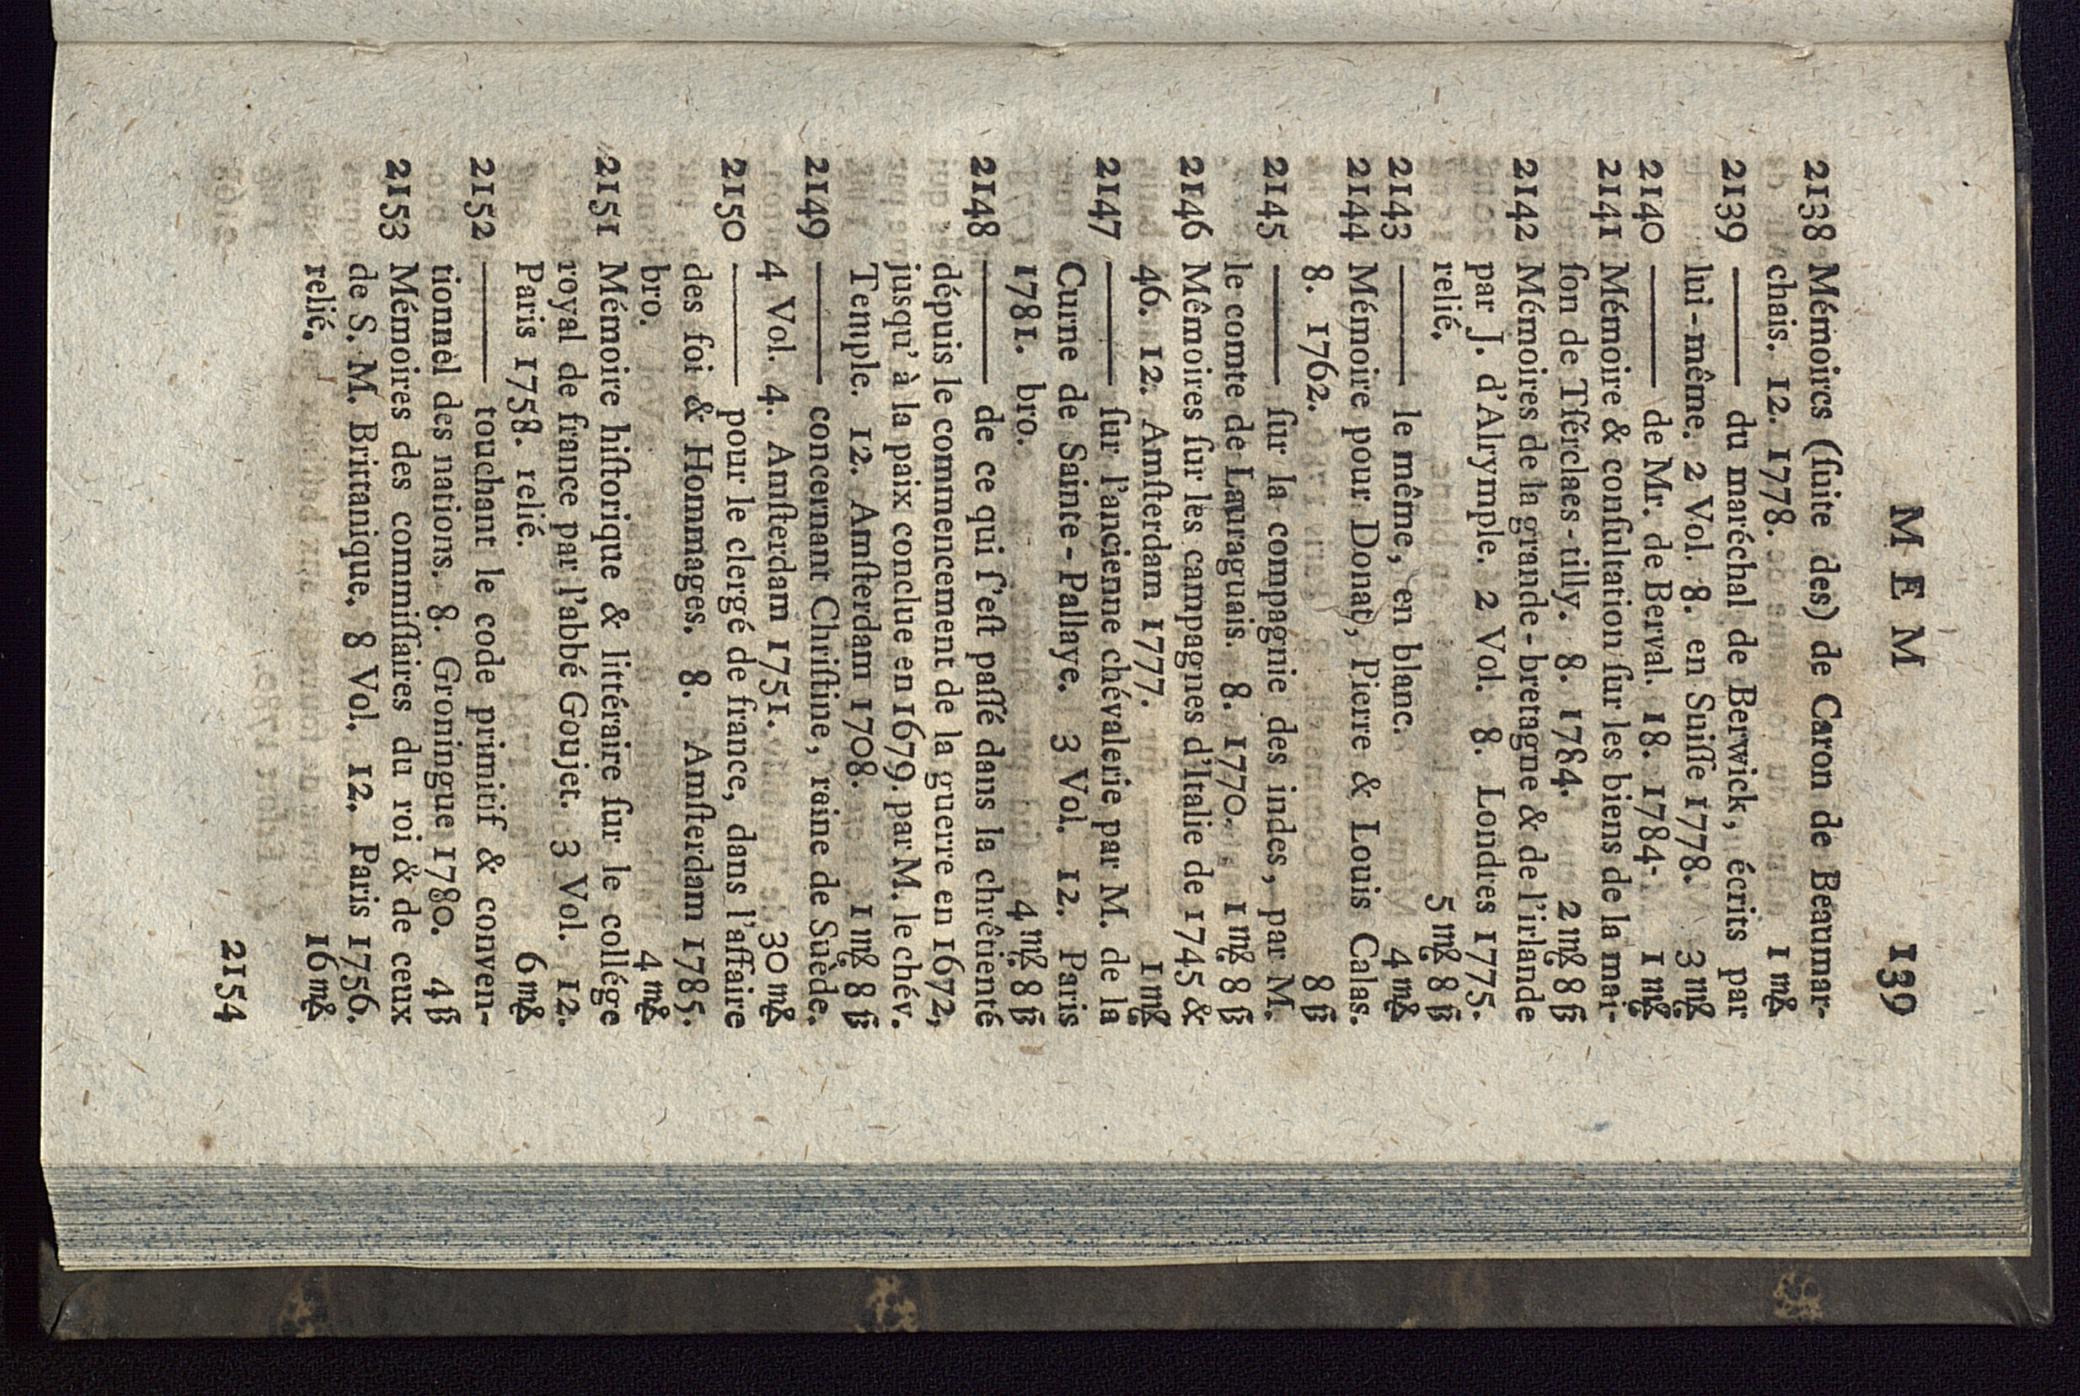 M E M 139
2138 Mémoires (ſuite des) de Caron de Beaumar-
chais. 12. 1778. 1 m&
2139 ——— du maréchal de Berwick, écrits par
lui-même. 2 Vol. 8. en Suiſſe 1778. 3 m&
2140 ——— de Mr. de Berval. 18. 1784. 1 m&
2141 Mémoire & conſultation ſur les biens de la mai-
ſon de Tſérclaes-tilly. 8. 1784. 2 m& 8 ß
2142 Mémoires de la grande-bretagne & de l'irlande
par J. d'Alrymple. 2 Vol. 8. Londres 1775.
relié. 5 m& 8 ß
2143 ——— le même, en blanc. 4 m&
2144 Mémoire pour Donat, Pierre & Louis Calas.
8. 1762. 8 ß
2145 ——— ſur la compagnie des indes, par M.
le comte de Lauraguais. 8. 1770. 1 m& 8 ß
2146 Mêmoires ſur les campagnes d'Italie de 1745 &
46. 12. Amſterdam 1777. 1 m&
2147 ——— ſur l'ancienne chévalerie par M. de la
Curne de Sainte-Pallaye. 3 Vol. 12. Paris
1781. bro. 4 m& 8 ß
2148 ——— de ce qui ſ'eſt paſſé dans la chrêtienté
dépuis le commencement de la guerre en 1672,
jusqu' à la paix conclue en 1679. par M. le chév.
Temple. 12. Amſterdam 1708. 1 m& 8 ß
2149 ——— concernant Chriſtine, reine de Suède.
4 Vol. 4. Amſterdam 1751. 30 m&
2150 ——— pour le clergé de france, dans l'affaire
des foi & Hommages. 8. Amſterdam 1785.
bro. 4 m&
2151 Mémoire hiſtorique & littéraire ſur le collége
royal de france par l'abbé Goujet. 3 Vol. 12.
Paris 1758. relié. 6 m&
2152 ——— touchant le code primitif & conven-
tionnel des nations. 8. Groningue 1780. 4 ß
2153 Mémoires des commiſſaires du roi & de ceux
de S. M. Britanique. 8 Vol. 12. Paris 1756.
relié. 16 m&
2154